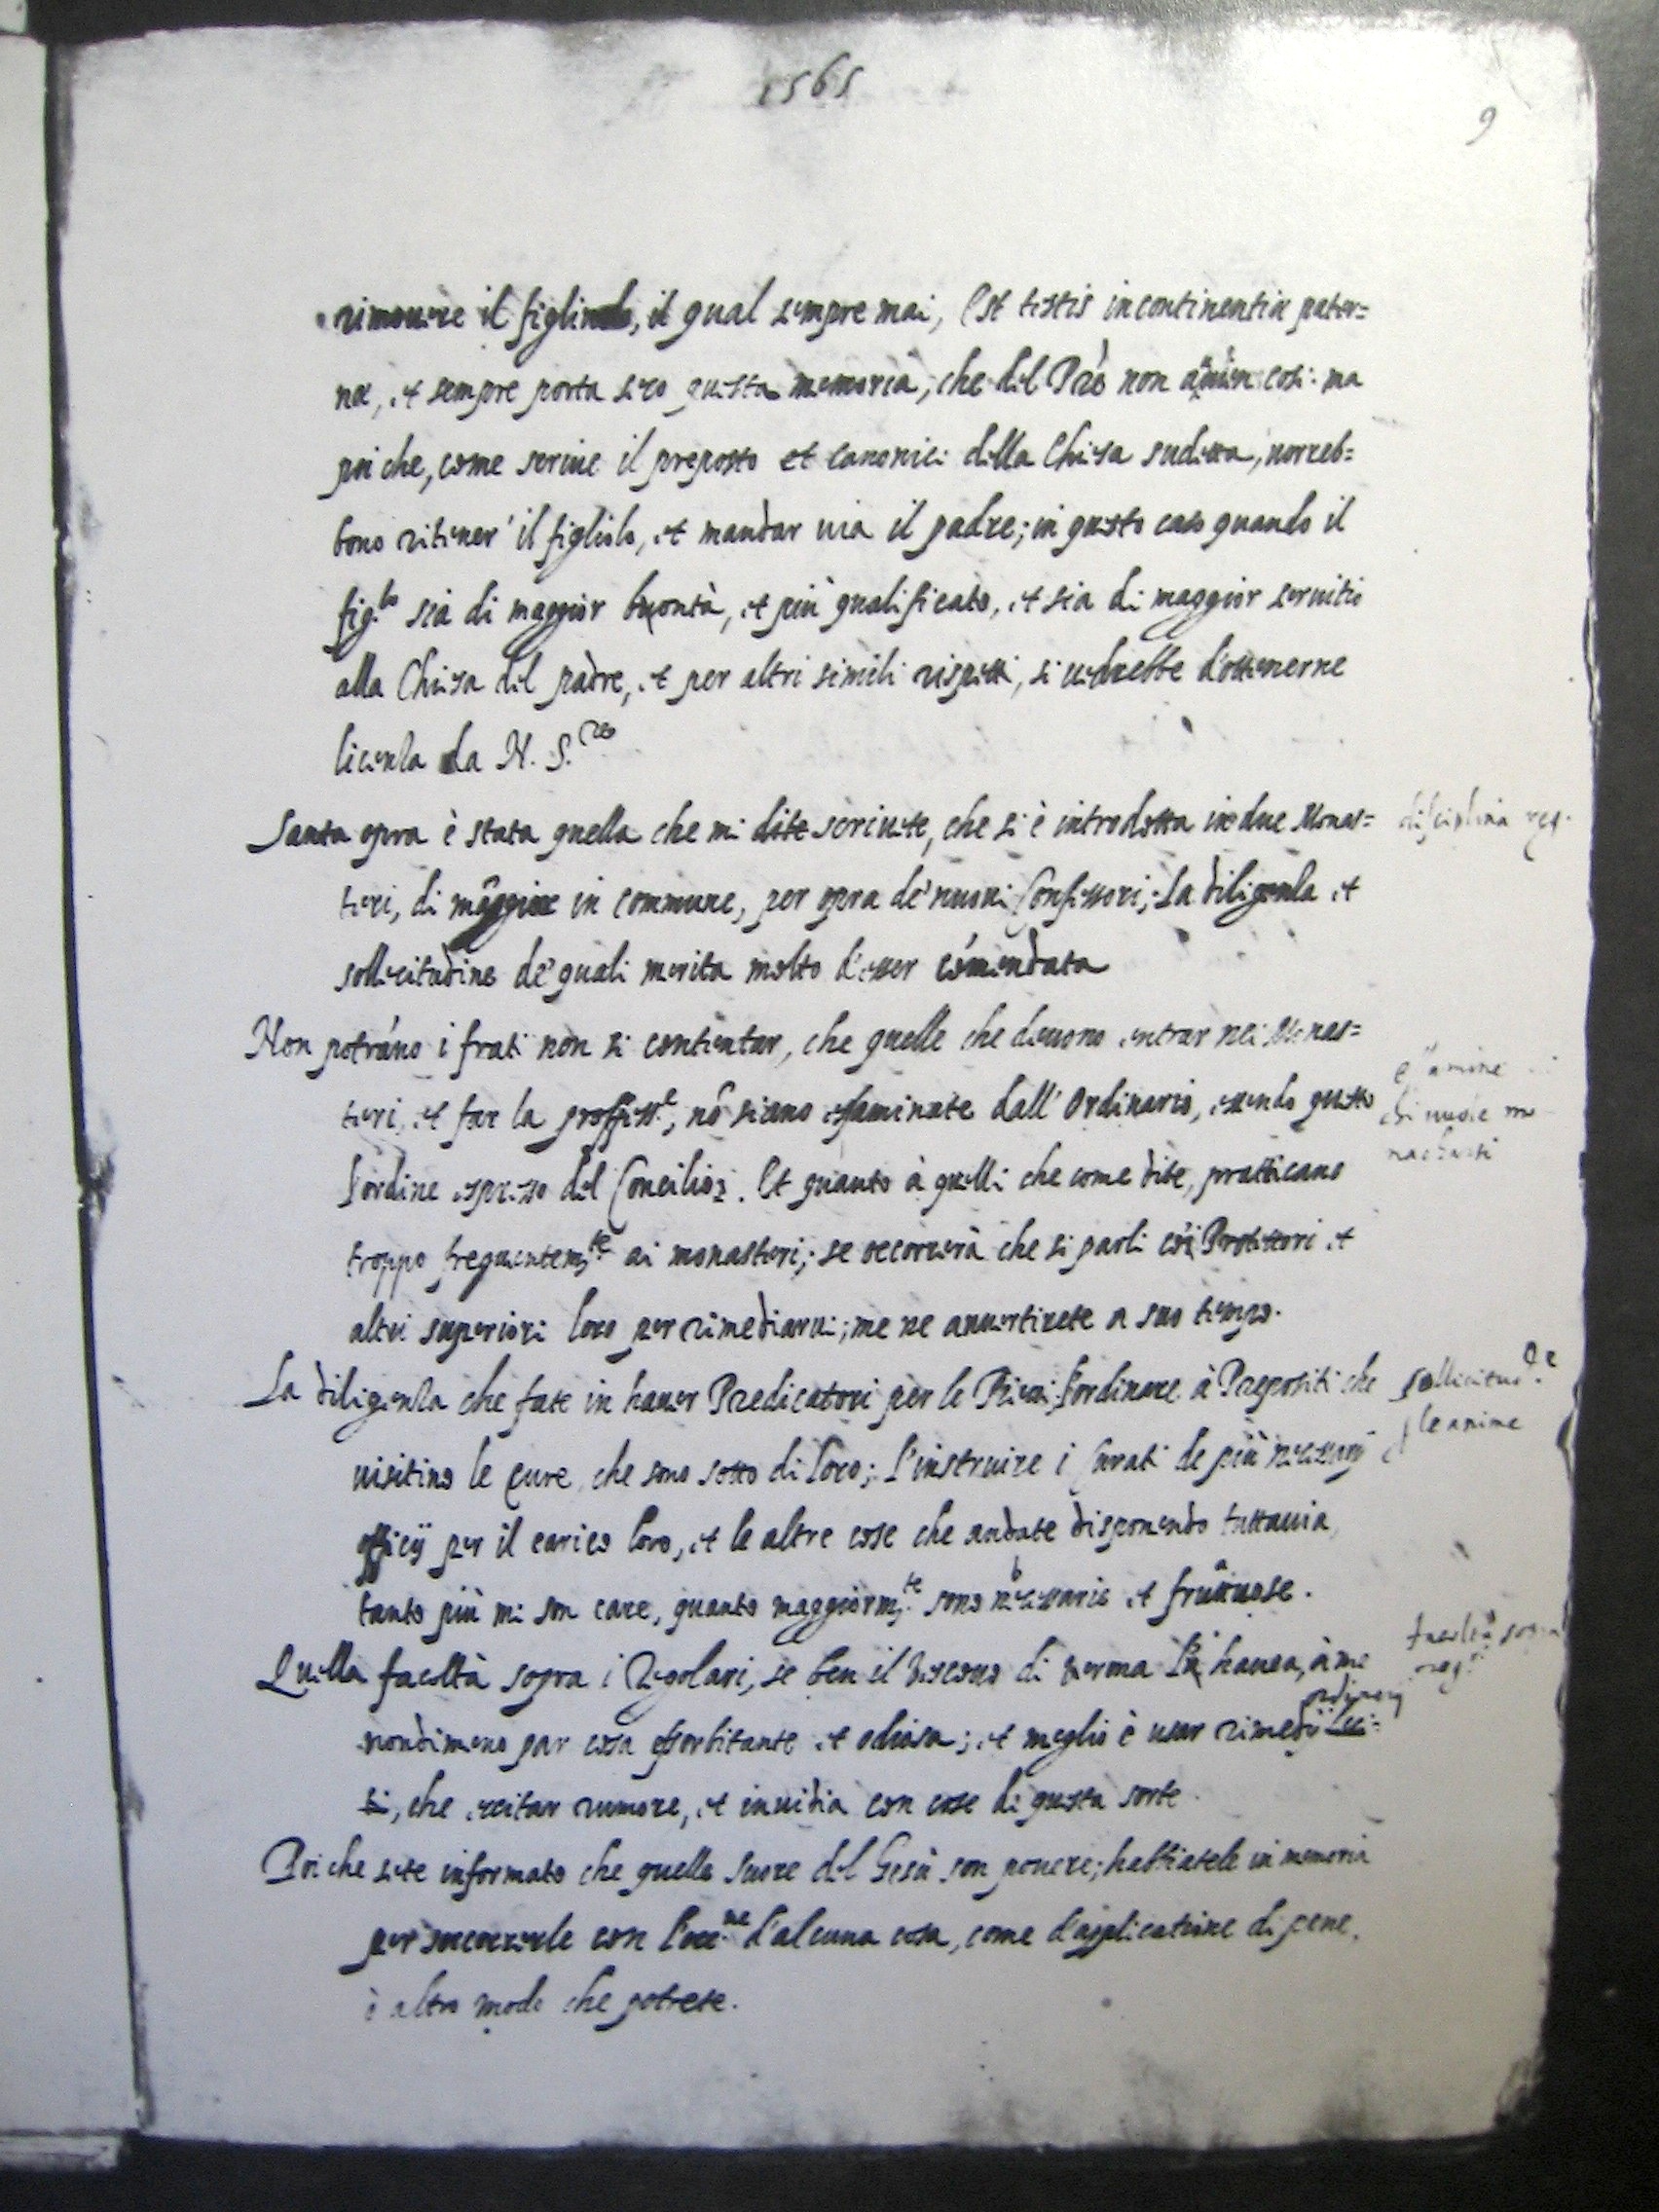 1565
9
rimouere il figliuolo, il qual sempre mai, Est testis incontinentiæ pater=
næ, et sempre porta seco questa memoria, che del Prè non auien cosi: ma
poi che, come scriue il preposto et canonici della Chiesa sudetta, vorreb=
bono ritener' il figliolo, et mandar uia il padre; in questo caso quando il
fig.lo sia di maggior buontà, et più qualificato, et sia di maggior seruitio
alla Chiesa del padre, et per altri simili rispetti, si uedrebbe d'ottenerne
licenza da N. S.re
Santa opra è stata quella che mi dite scriuete, che si è introdotta in due Monas=
disciplina reg.
teri, di mãgiare in commune, per opra de' nuoui Confessori; La diligenza et
sollecitudine de' quali merita molto d'esser cõmendata
Non potrãno i frati non si contentar, che quelle che deuono entrar nei Monas=
teri, et far la professe, nõ siano essaminate dall' Ordinario, essendo questo
essamine
di nuoue mo
nachandi
l'ordine espresso del Concilio. Et quanto à quelli che come dite, pratticano
troppo frequentem.te ai monasteri; se occorrerà che si parli coi Protettori et
altri superiori loro per rimediarui; me ne auuertirete a suo tempo.
La diligenza che fate in hauer Predicatori per le Pieui, l'ordinare à Prepositi che
sollicitud.e
p le anime
uisitino le cure, che sono sotto di loro; L'instruire i Curati de più necessarij
officij per il carico loro, et le altre cose che andate disponendo tuttauia,
tanto più mi son care, quanto maggiorm.te sono necessarie et fruttuose.
Quella facoltà sopra i Regolari, se ben il Vescouo di Verma l'hauea, à me
facoltà sopra
reg.ri
nondimeno par cosa essorbitante et odiosa; et meglio è usar rimedij leci=
ordinarij
ti, che eccitar rumore, et inuidia con cose di questa sorte.
Poi che sete informato che quelle Suore del Gesù son pouere; habbiatele in memoria
per soccorrerle con l'occ.ne d'alcuna cosa, come d'applicatione di pene,
ò altro modo che potrete.